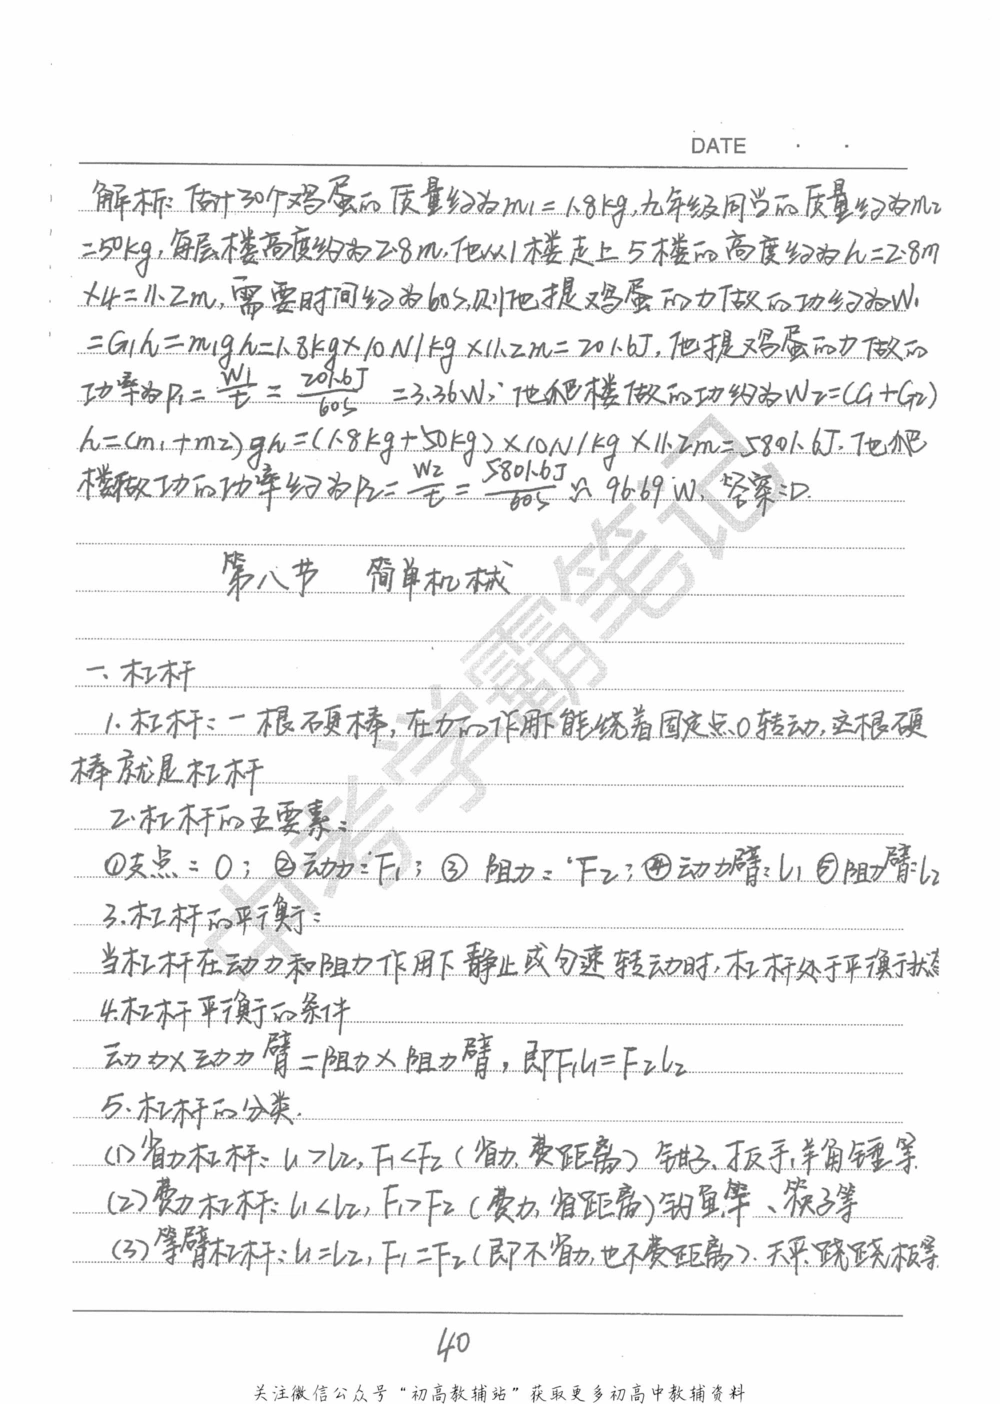 DATE · ·
解析: 估计30个鸡蛋的质量约为m₁=1.8kg,九年级同学的质量约为m₂
=50kg,每层楼高度约为2.8m.他从1楼走上5楼的高度约为h=2.8m
×4=11.2m,需要时间约为60s,则他提鸡蛋的力做的功约为W₁
=G₁h=m₁gh=1.8kg×10N/kg×11.2m=201.6J,他提鸡蛋的力做的
功率为P₁=W₁/t=201.6J/60s=3.36W;他爬楼做的功约为W₂=(G₁+G₂)
h=(m₁+m₂)gh=(1.8kg+50kg)×10N/kg×11.2m=5801.6J.他爬
楼做功的功率约为P₂=W₂/t=5801.6J/60s≈96.69W,答案:D.
第八节 简单机械
一、杠杆
1.杠杆:一根硬棒,在力的作用下能绕着固定点O转动,这根硬
棒就是杠杆
2.杠杆的五要素:
①支点:O;②动力:F₁;③阻力:F₂;④动力臂:L₁⑤阻力臂:L₂
3.杠杆的平衡:
当杠杆在动力和阻力作用下静止或匀速转动时,杠杆处于平衡状态
4.杠杆平衡的条件
动力×动力臂=阻力×阻力臂,即F₁L₁=F₂L₂
5.杠杆的分类.
(1)省力杠杆:L₁>L₂,F₁<F₂(省力,费距离)钳子、扳手,羊角锤等
(2)费力杠杆:L₁<L₂,F₁>F₂(费力,省距离)钓鱼竿、筷子等
(3)等臂杠杆:L₁=L₂,F₁=F₂(即不省力,也不费距离).天平,跷跷板等
40
关注微信公众号“初高教辅站”获取更多初高中教辅资料
中考学霸笔记